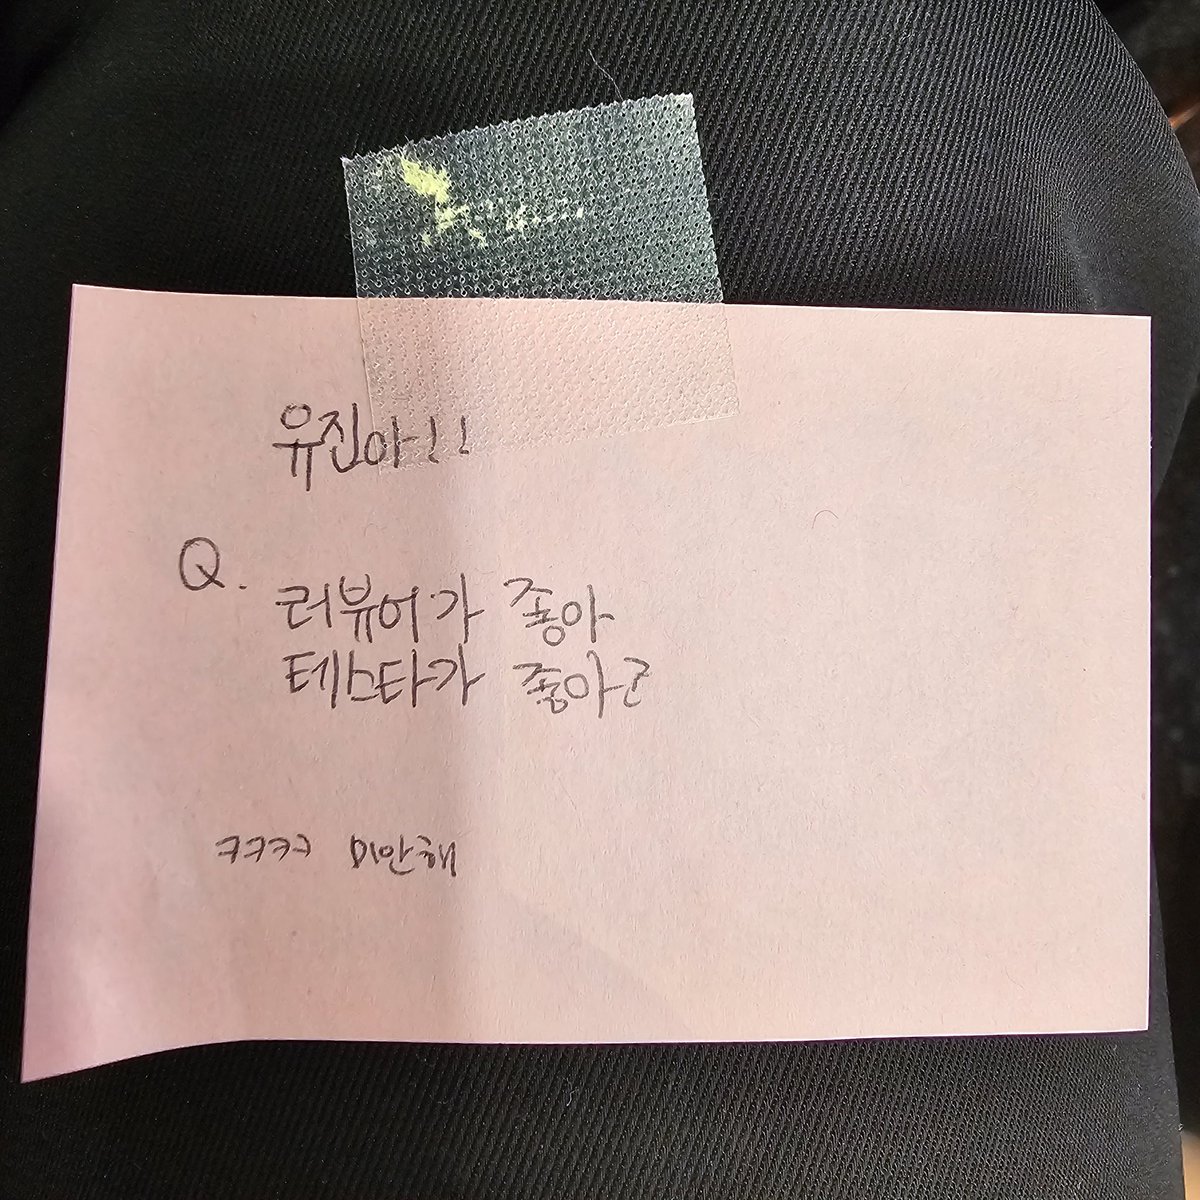 유진아!!
Q.
러뷰어가 좋아
테스타가 좋아?
ㅋㅋㅋㅋ 미안해